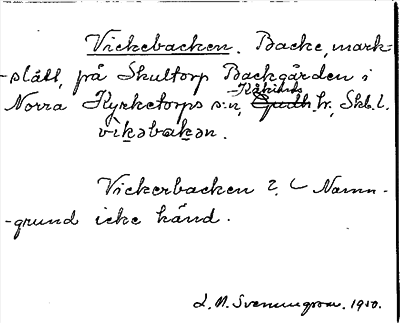 Vickebacken. Backe, mark-
-slätt, på Skultorp Backgården i
Kåkinds
Norra Kyrketorps s:n, Gudh. hr, Skb. l.
vìk̠əbak̠ən.
Vickerbacken ? Namn-
-grund icke känd.
L. M. Svenungsson. 1950.